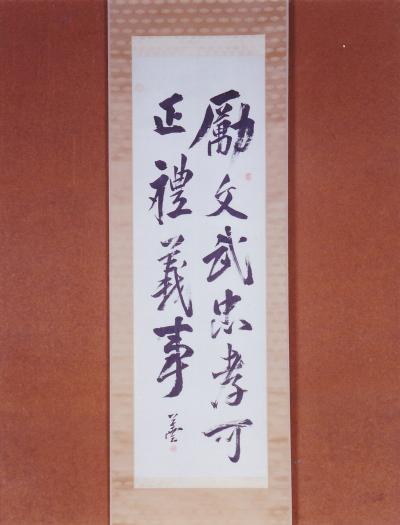 勵文武忠孝可
正禮義事